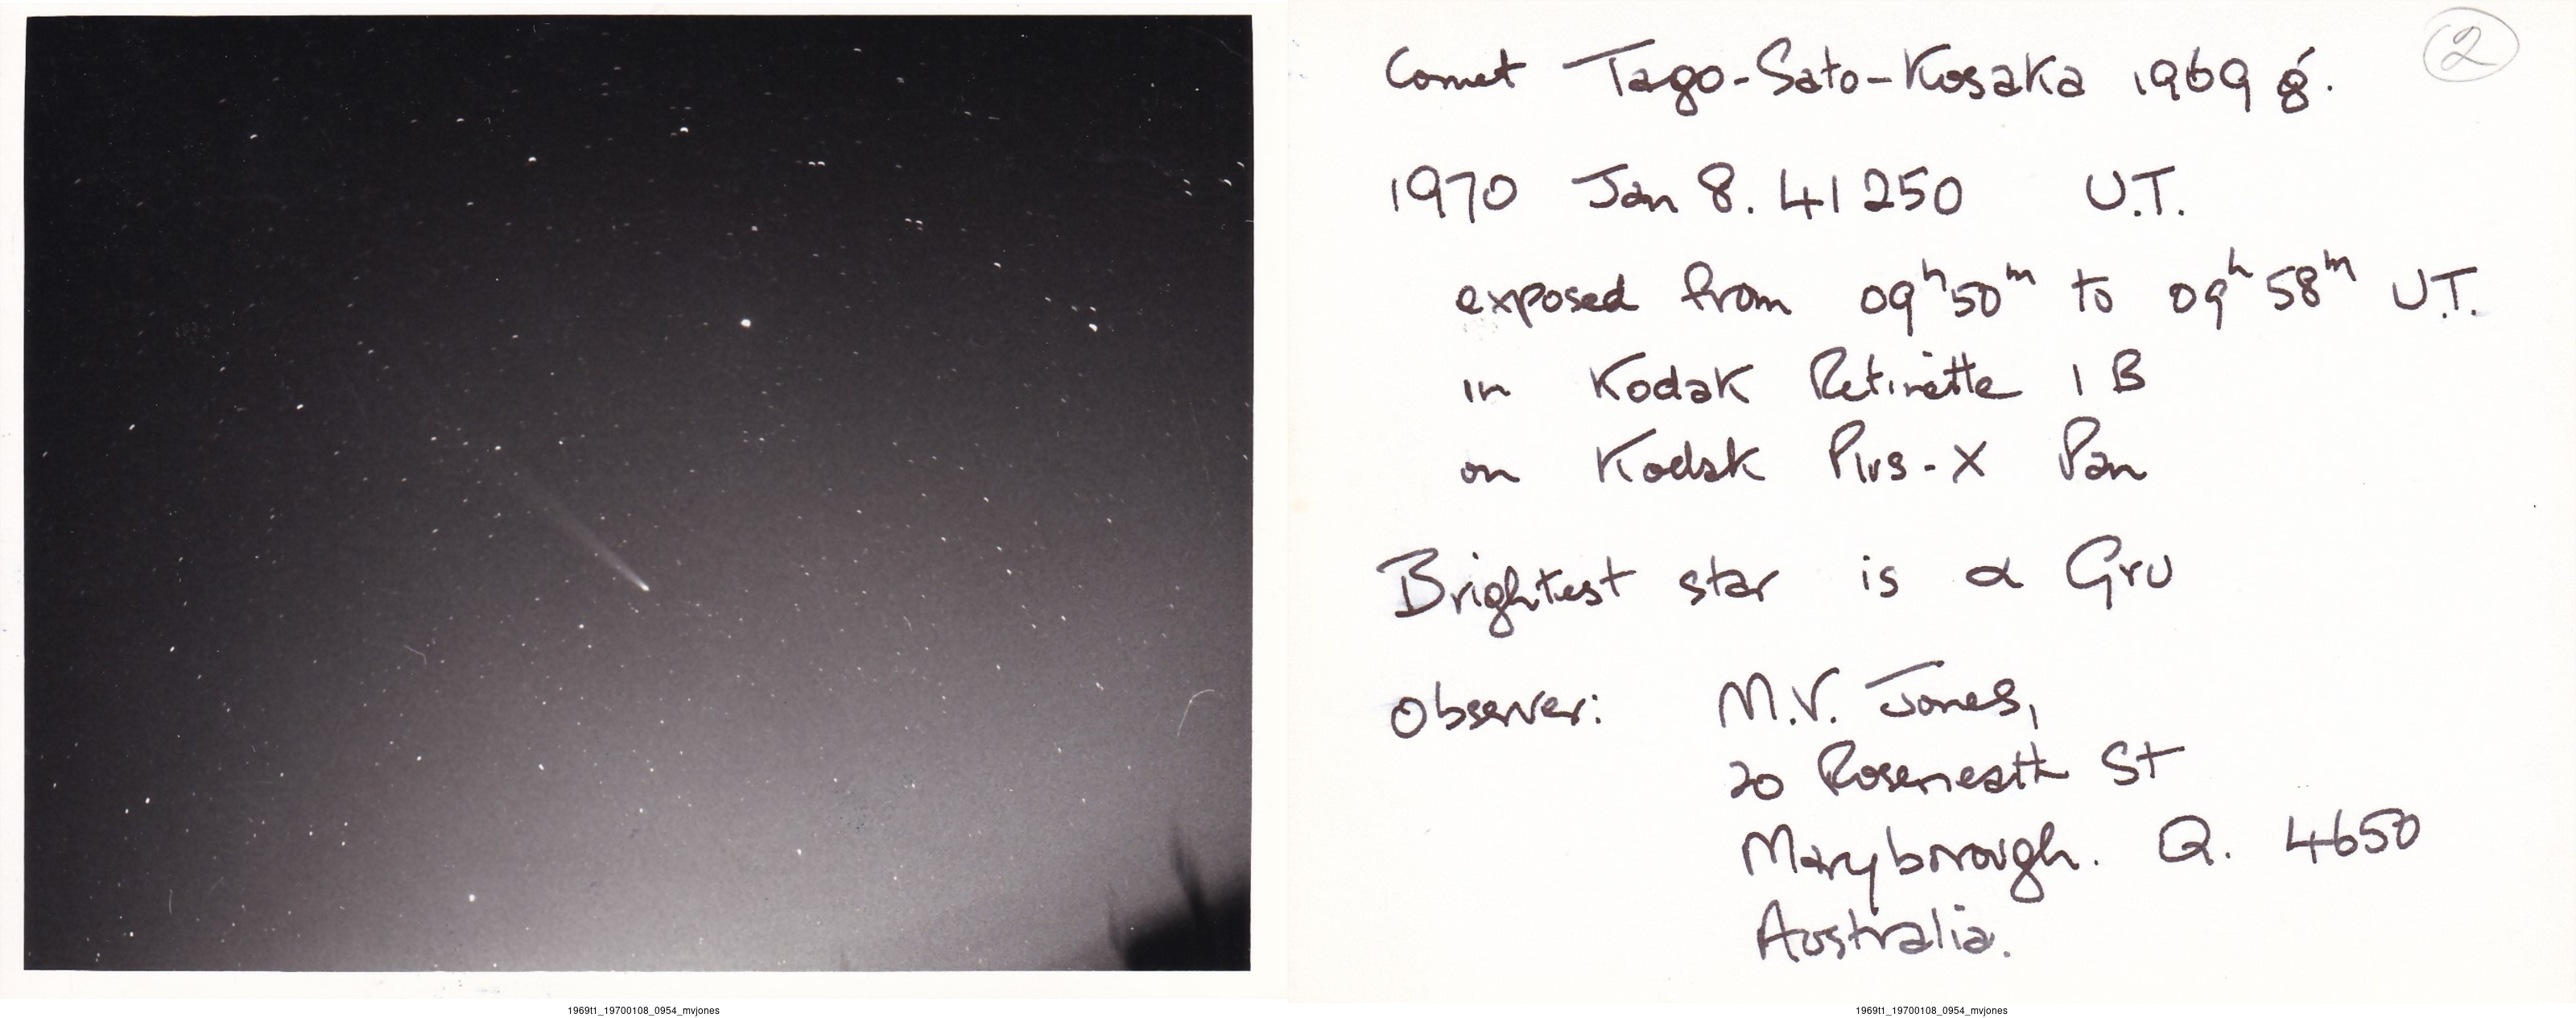 Comet Tago-Sato-Kosaka 1969 g.
2
1970 Jan 8.41250 U.T.
exposed from 09h50m to 09h58m U.T.
in Kodak Retinette 1 B
on Kodak Plus-X Pan
Brightest star is α Gru
Observer: M.V. Jones,
20 Roseneath St
Maryborough. Q. 4650
Australia.
1969t1_19700108_0954_mvjones
1969t1_19700108_0954_mvjones